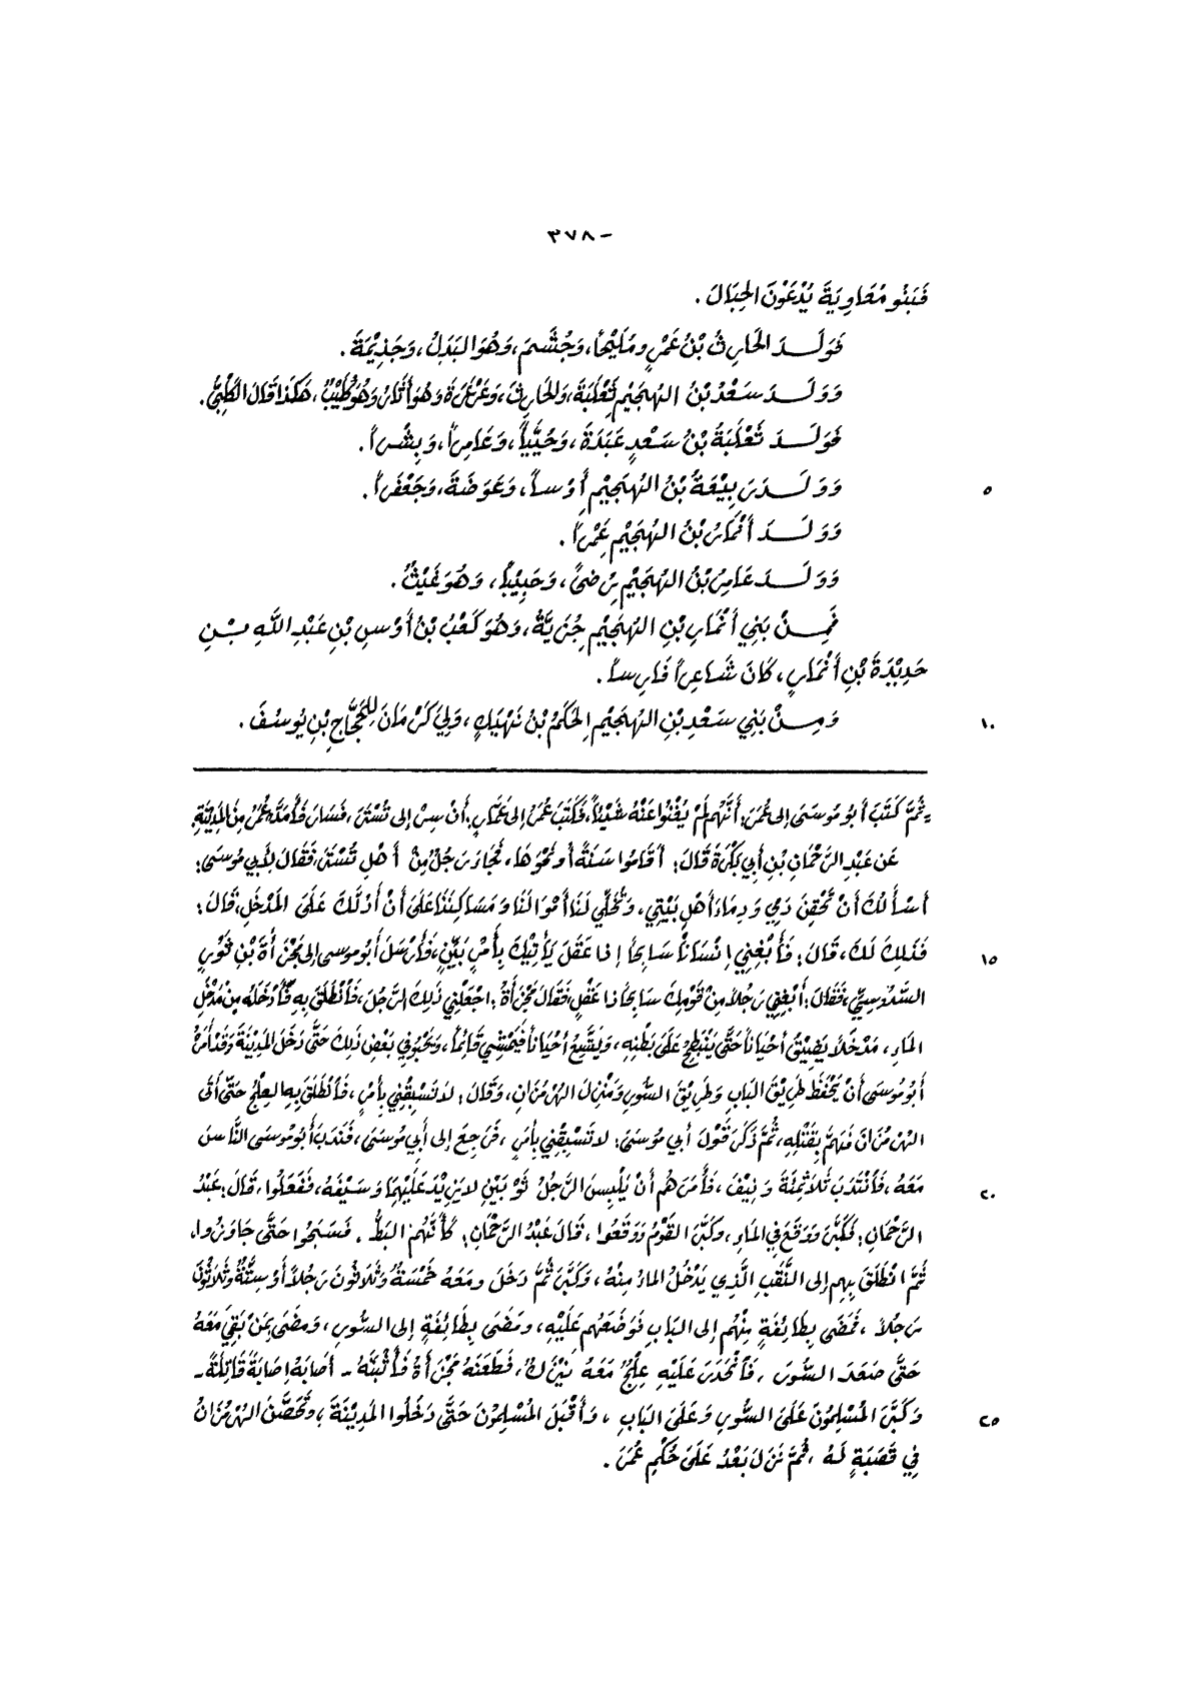 ٣٧٨ -
فَبَنُو مُعَاوِيَةَ يُدْعَوْنَ الحِبَالَ .
فَوَلَـدَ الحَارِثُ بْنُ عَمْرٍو مُلَيْحاً، وَجُشَمَ، وَهُوَ البَدَلُ، وَجَذِيْمَةَ .
وَوَلَـدَ سَعْدُ بْنُ الهُجَيْمِ ثَعْلَبَةَ، وَالحَارِثَ، وَعَرْعَرَةَ وَهُوَ أَثَالُ وَهُوَ كُلَيْبٌ، هَكَذَا قَالَ الكَلْبِيُّ .
فَوَلَـدَ ثَعْلَبَةُ بْنُ سَعْدٍ عَبَدَةَ، وَحُيَيّاً، وَعَامِراً، وَبِشْراً .
٥ وَوَلَـدَ رَبِيْعَةُ بْنُ الهُجَيْمِ أَوْساً، وَعَوَضَةَ، وَجَعْفَراً .
وَوَلَـدَ أَنْمَارُ بْنُ الهُجَيْمِ عَمْراً .
وَوَلَـدَ عَامِرُ بْنُ الهُجَيْمِ رِضىً، وَحَبِيْباً، وَهُوَ غَيْثٌ .
فَمِـنْ بَنِي أَنْمَارِ بْنِ الهُجَيْمِ جُرَيَّةُ، وَهُوَ كَعْبُ بْنُ أَوْسِ بْنِ عَبْدِ اللَّهِ بْـنِ
حَدِيْدَةَ بْنِ أَنْمَارٍ، كَانَ شَاعِراً فَارِساً .
١٠ وَمِـنْ بَنِي سَعْدِ بْنِ الهُجَيْمِ الحَكَمُ بْنُ نَهِيْكٍ، وَلِيَ كَرْمَانَ لِلْحَجَّاجِ بْنِ يُوسُفَ .
= ثُمَّ كَتَبَ أَبُو مُوسَى إلى عُمَرَ: أَنَّهُم لَمْ يُغْنُوا عَنْهُ شَيْئاً، فَكَتَبَ عُمَرُ إلى عَمَّارٍ: أَنْ سِرْ إلى تُسْتَرَ، فَسَارَ فَأَمَدَّهُ عُمَرُ مِنَ المَدِيْنَةِ.
عَن عَبْدِ الرَّحْمَانِ بْنِ أَبِي بَكْرَةَ قَالَ: أَقَامُوا سَنَةً أو نَحْوَهَا، فَجَاءَ رَجُلٌ مِنْ أَهْلِ تُسْتَرَ، فَقَالَ لِأَبِي مُوسَى:
أَسْأَلُكَ أَنْ تَحْقِنَ دَمِي وَدِمَاءَ أَهْلِ بَيْتِي، وَتُخَلِّي لَنَا أَمْوَالَنَا وَمَسَاكِنَنَا عَلَى أَنْ أَدُلَّكَ عَلَى المَدْخَلِ، قَالَ:
١٥ فَذَلِكَ لَكَ، قَالَ: فَأَبْغِنِي إنْسَاناً سَابِحاً إذا عَقْلٍ يَأْتِيْكَ بِأَمْرٍ بَيِّنٍ، فَأَرْسَلَ أَبُو موسى إلى مَجْزَأَةَ بْنِ ثَوْرٍ
السَّدُوسِيِّ، فَقَالَ: أَبْغِنِي رَجُلاً مِنْ قَوْمِكَ سَابِحاً ذا عَقْلٍ، فَقَالَ مَجْزَأَةُ: اجْعَلْنِي ذَلِكَ الرَّجُلَ، فَأَنْطَلَقَ بِهِ فَأَدْخَلَهُ مِنْ مَدْخَلِ
المَاءِ، مَدْخَلاً يَضِيْقُ أَحْيَاناً حَتَّى يَنْبَطِحَ عَلَى بَطْنِهِ، وَيَتَّسِعُ أَحْيَاناً فَيَمْشِي قَائِماً، وَيَحْبُو فِي بَعْضِ ذَلِكَ حَتَّى دَخَلَ المَدِيْنَةَ وَقَدْ أَمَرَهُ
أَبُو مُوسَى أَنْ يَحْفَظَ طَرِيْقَ البَابِ وَطَرِيْقَ السُّورِ وَمَنْزِلَ الهُرْمُزَانِ، وَقَالَ: لا تَسْبِقْنِي بِأَمْرٍ، فَأَنْطَلَقَ بِهِ العِلْجُ حَتَّى أَتَى
الهُرْمُزَانَ فَهَمَّ بِقَتْلِهِ، ثُمَّ ذَكَرَ قَوْلَ أبي مُوسَى: لا تَسْبِقْنِي بِأَمْرٍ، فَرَجِعَ إلى أَبِي مُوسَى، فَنَدَبَ أَبُو مُوسَى النَّاسَ
٢٠ مَعَهُ، فَأَنْتَدَبَ ثَلَاثُمِئَةٍ وَنِيْفٌ، فَأَمَرَهُم أَنْ يَلْبِسَ الرَّجُلُ ثَوْبَيْنِ لا يَزِيْدُ عَلَيْهِمَا وَسَيْفَهُ، فَفَعَلُوا، قَالَ: عَبْدُ
الرَّحْمَانِ: فَكَبَّرَ وَوَقَعَ فِي المَاءِ، وكَبَّرَ القَوْمُ وَوَقَعُوا، قَالَ عَبْدُ الرَّحْمَانِ: كَأَنَّهُم البَطُّ، فَسَبَحُوا حَتَّى جَاوَزُوا،
ثُمَّ انْطَلَقَ بِهِم إلى النَّقْبِ الَّذِي يَدْخُلُ المَاءُ مِنْهُ، وَكَبَّرَ ثُمَّ دَخَلَ ومَعَهُ خَمْسَةٌ وَثَلَاثُونَ رَجُلاً أو سِتَّةٌ وَثَلَاثُونَ
رَجُلاً، فَمَضَى بِطَائِفَةٍ مِنْهُم إلى البَابِ فَوَضَعَهُم عَلَيْهِ، ومَضَى بِطَائِفَةٍ إلى السُّورِ، وَمَضَى بِمَنْ بَقِيَ مَعَهُ
حَتَّى صَعَدَ السُّورَ، فَأَنْحَدَرَ عَلَيْهِ عِلْجٌ مَعَهُ نَيْزَكٌ، فَطَعَنَهُ مَجْزَأَةُ فَأَثْبَتَهُ - أصَابَهُ إصَابَةً قَاتِلَةً -
٢٥ وَكَبَّرَ المُسْلِمُونَ عَلَى السُّورِ وَعَلَى البَابِ، وَأَقْبَلَ المُسْلِمُوْنَ حَتَّى دَخَلُوا المَدِيْنَةَ، وتَحَصَّنَ الهُرْمُزَانُ
فِي قَصَبَةٍ لَهُ، ثُمَّ نَزَلَ بَعْدُ عَلَى حُكْمِ عُمَرَ .